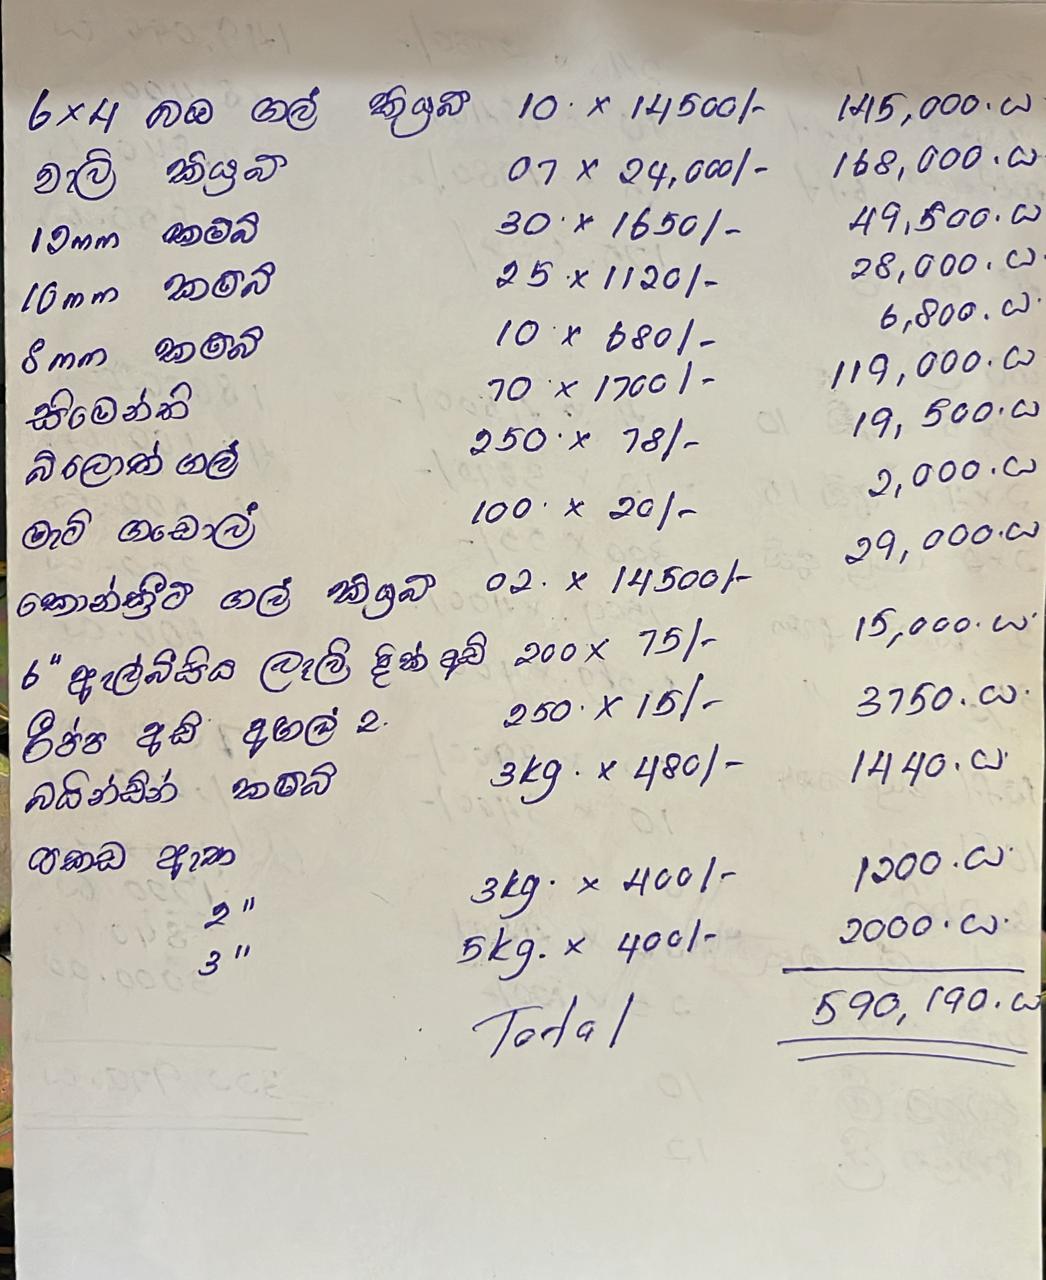 6×4 කළු ගල් කියුබ් 10. × 14500/- 145,000.00
වැලි කියුබ් 07 × 24,000/- 168,000.00
12mm කම්බි 30. × 1650/- 49,500.00
10mm කම්බි 25. × 1120/- 28,000.00
8mm කම්බි 10 × 680/- 6,800.00
සිමෙන්ති 70 × 1700/- 119,000.00
බ්ලොක් ගල් 250. × 78/- 19,500.00
මැටි ගඩොල් 100. × 20/- 2,000.00
කොන්ක්‍රීට් ගල් කියුබ් 02. × 14500/- 29,000.00
6" ඇල්බීසියා ලෑලි දික් අඩි 200 × 75/- 15,000.00
රීප්ප අඩි අඟල් 2. 250. × 15/- 3750.00
බයින්ඩින් කම්බි 3kg. × 480/- 1440.00
යකඩ ඇණ
2" 3kg. × 400/- 1200.00
3" 5kg. × 400/- 2000.00
Total 590,190.00